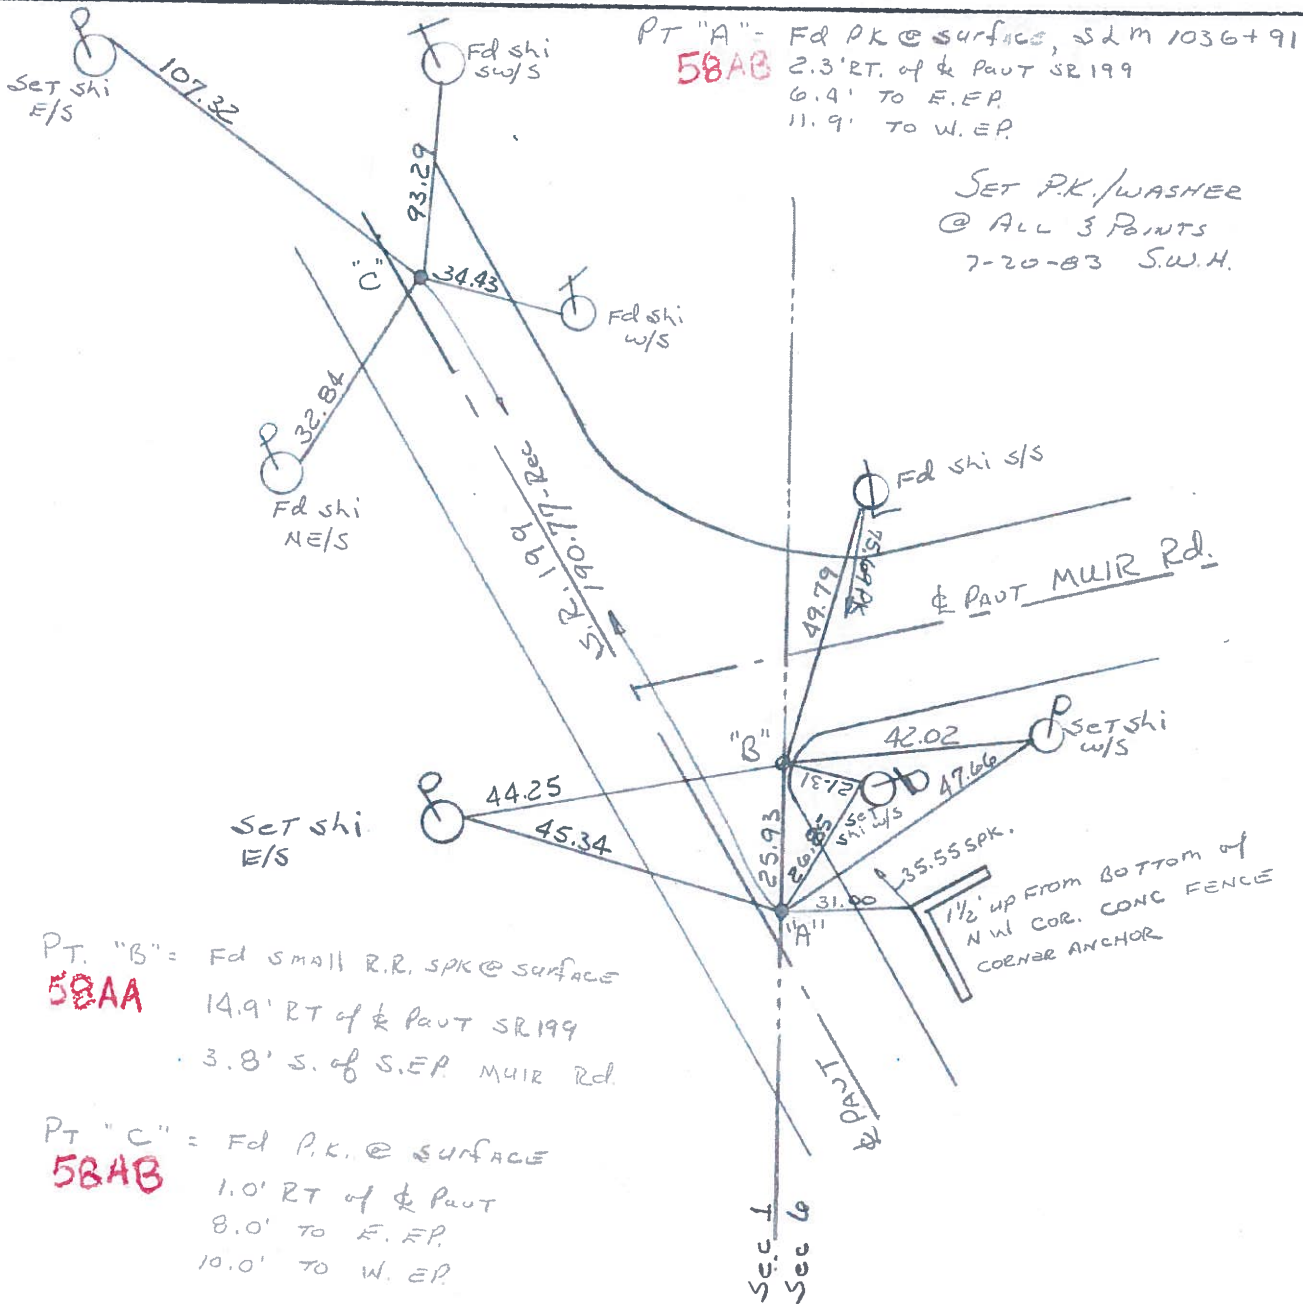 PT "A" - Fd PK @ surface, SLM 1036+91
58AB
2.3' RT. of ℄ PAVT SR 199
6.4' TO E. EP.
11.9' TO W. EP.
SET P.K./WASHER
@ ALL 3 POINTS
7-20-83 S.W.H.
SET shi
E/S
107.32
Fd shi
SW/S
93.29
"C"
34.43
Fd shi
W/S
32.84
Fd shi
NE/S
S.R. 199
190.77-Rec
Fd shi S/S
49.79
75.69 PK
℄ PAVT MUIR Rd.
"B"
42.02
SET shi
W/S
21.31
SET
shi W/S
47.66
44.25
SET shi
E/S
45.34
25.93
35.55 SPK.
31.00
"A"
1½' UP FROM BOTTOM of
NW COR. CONC FENCE
CORNER ANCHOR
PT. "B" = Fd SMALL R.R. SPK @ SURFACE
58AA
14.9' RT of ℄ PAVT SR 199
3.8' S. of S.EP. MUIR Rd.
PT "C" = Fd P.K. @ SURFACE
58AB
1.0' RT of ℄ PAVT
8.0' TO E. EP.
10.0' TO W. EP.
℄ PAVT
Sec 1
Sec 6